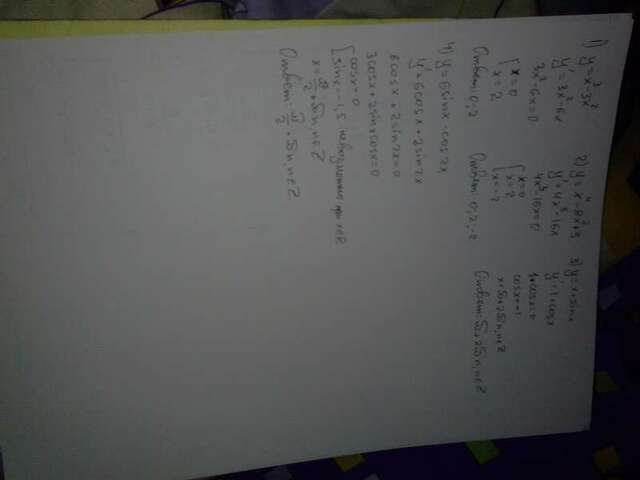 1) y = x³-3x²
y' = 3x²-6x
3x²-6x=0
[ x=0
x=2
Ответ: 0, 2
2) y = x⁴-8x²+3
y' = 4x³-16x
4x³-16x=0
[ x=0
x=2
x=-2
Ответ: 0, 2, -2
3) y = x+sinx
y' = 1+cosx
1+cosx=0
cosx=-1
x=π+2πn, n∈Z
Ответ: π+2πn, n∈Z
4) y = 6sinx-cos2x
y' = 6cosx+2sin2x
6cosx+2sin2x=0
3cosx+2sinxcosx=0
[ cosx=0
sinx=-1,5 невозможно при x∈R
x=π/2+πn, n∈Z
Ответ: π/2+πn, n∈Z